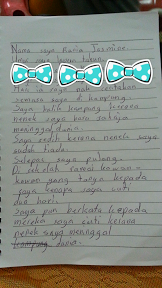 Nama saya Nuria Jasmine.
Hari ini saya nak ceritakan
semasa saya di kampung.
Saya balik kampung kerana
nenek saya baru sahaja
meninggal dunia.
Saya sedih kerana nenek saya
sudah tiada.
Selepas saya pulang
Di sekolah ramai kawan-
kawan yang tanya kepada
saya kenapa saya cuti
dua hari.
Saya pun berkata kepada
mereka saya cuti kerana
nenek saya meninggal
dunia.